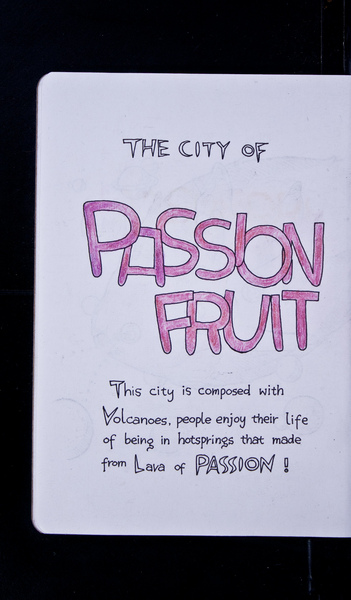 THE CITY OF
PASSION
FRUIT
This city is composed with
Volcanoes, people enjoy their life
of being in hotsprings that made
from Lava of PASSION !